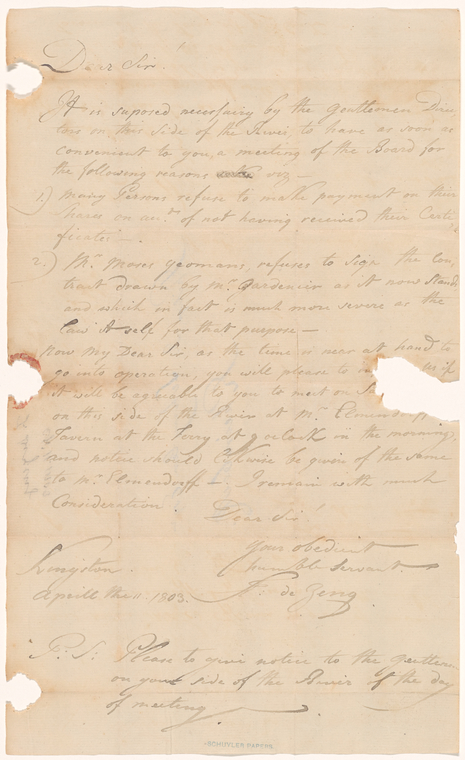 Dear Sir!
It is suposed necessairy by the gentlemen Direc-
tors on this side of the River, to have as soon as
convenient to you, a meeting of the Board for
the following reasons viz —
1.) Many Persons refuse to make payment on their
Shares on acct. of not having received their Certi-
ficates —.
2.) Mr. Moses Yeomans, refuses to sign the Con-
tract drawn by Mr. Gardenier as it now Stands
and which in fact is much more severe as the
law it self for that purpose —
Now My Dear Sir, as the time is near at hand to
go into operation, you will please to us if
it will be agreable to you to meet on
on this side of the River at Mr. Elmendorff
Tavern at the ferry at 9 oClock in the morning,
and notice should likewise be given of the same
to Mr. Elmendorff —. I remain with much
Consideration.
Dear Sir!
Your obedient
humble Servant
Kingston
Aprill the 11. 1803.
Fr. de Zeng
P: S: Please to give notice to the gentlemen
on your side of the River of the day
of meeting
SCHUYLER PAPERS